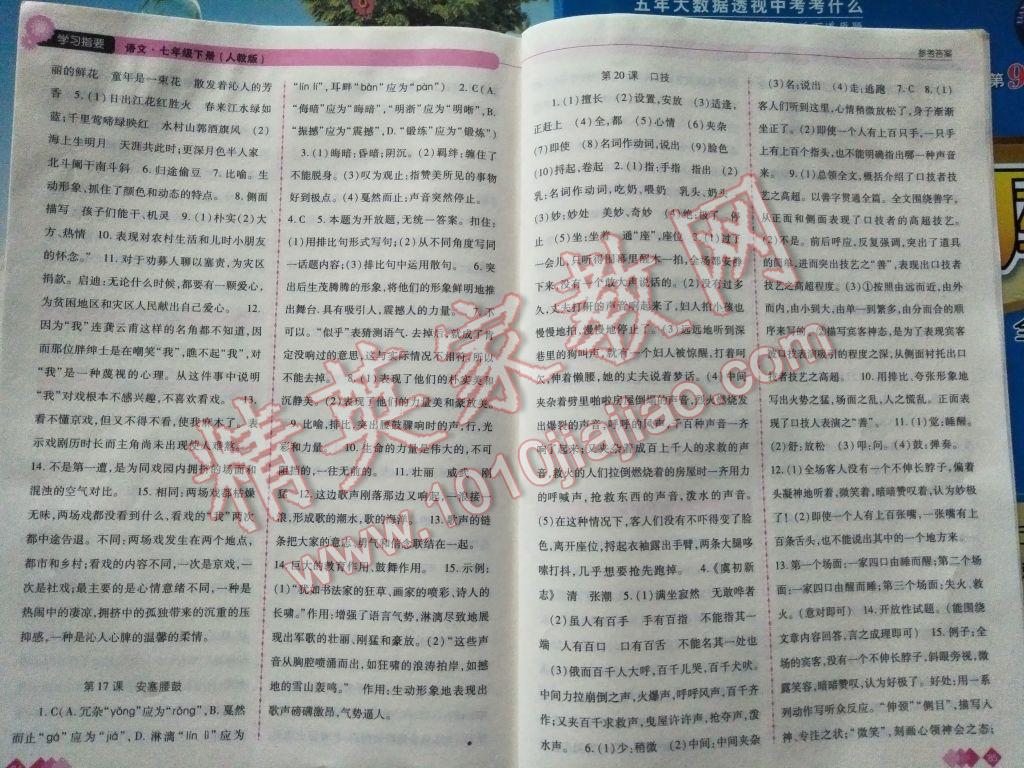 五年大数据透视中考考什么
第9
学习指要
语文·七年级下册(人教版)
参考答案
丽的鲜花 童年是一束花 散发着沁人的芳
香 5. (1)日出江花红胜火 春来江水绿如
蓝;千里莺啼绿映红 水村山郭酒旗风 (2)
海上生明月 天涯共此时;更深月色半人家
北斗阑干南斗斜 6. 归途偷豆 7. 比喻。生
动形象,抓住了颜色和动态的特点。 8. 侧面
描写 孩子们能干、机灵 9. (1)朴实(2)大
方、热情 10. 表现对农村生活和儿时小朋友
的怀念。” 11. 对于劝募人聊以塞责,为灾区
捐款。启迪:无论什么时候,都要有一颗爱心,
为贫困地区和灾区人民献出自己爱心。 12.
因为“我”连龚云甫这样的名角都不知道,因
而那位胖绅士是在嘲笑“我”,瞧不起“我”,对
“我”是一种蔑视的心理。从这件事中说明
“我”对戏根本不感兴趣,不喜欢看戏。 13.
看不懂京戏,但又不得不看,使我疲惫了。表
示戏剧历时长而主角尚未出现使人难熬。
14. 不是第一遭,是为同戏园内拥挤的场面和
混浊的空气对比。 15. 相同:两场戏都枯燥
无味,两场戏都没看到什么,看戏的“我”两次
都中途告退。不同:两场戏发生在两个地点,
都市和乡村;看戏的内容不同,一次是京戏,一
次是社戏;最主要的是心情意绪不同,一种是
热闹中的凄凉,拥挤中的孤独带来的沉重的压
抑感,一种是沁人心脾的温馨的柔情。
第 17 课 安塞腰鼓
1. C(A. 冗杂“yǒng”应为“rǒng”,B. 戛然
而止“gá”应为“jiá”,D. 淋漓“lín lì”应为
“lín lí”,耳畔“bàn”应为“pàn”) 2. C(A.
“侮暗”应为“晦暗”,“明浙”应为“明晰”,B.
“振撼”应为“震撼”,D. “锻练”应为“锻炼”)
3. (1)晦暗:昏暗;阴沉。(2)羁绊:缠住了
不能脱身。(3)叹为观止:指赞美所见的事物
好到极点。(4)戛然而止:声音突然停止。
4. C 5. 本题为开放题,无统一答案。扣住:
(1)用排比句形式写句;(2)从不同角度写同
一话题内容;(3)排比句中运用散句。 6. 突
出后生茂腾腾的形象,将他们的形象鲜明地推
出舞台,具有吸引人,震撼人的力量。 7. 不
可以。“似乎”表猜测语气,去掉后,就成了肯定
没有过的意思,这与实际情况不相符,所以
不能去掉。 8. (1)表现了他们的朴实美和
沉静美。(2)表现了他们的力量美和豪放美。
9. 比喻,排比,突出腰鼓骤响时的声,行,光
彩和力量。 10. 生命的力量是伟大的,不可
阻挡的,一往无前的。 11. 壮丽 威武 刚
猛 12. 这边歌声刚落那边又响起,一浪接一
浪,形成歌的潮水,歌的海洋。 13. 歌声的链
条把大家的意志,勇气和信念联结在一起。
14. 巨大的教育作用,鼓舞作用。 15. 示例:
(1)“犹如书法家的狂草,画家的喷彩,诗人的
长啸。”作用:增强了语言气势,淋漓尽致地展
现出军歌的壮丽、刚猛和豪放。(2)“这些声
音从胸腔喷涌而出,如狂啸的浪涛拍岸,如撼
地的雪山轰鸣。” 作用:生动形象地表现出
歌声磅礴激昂,气势逼人。
第 20 课 口技
1. (1)擅长 (2)设置,安放 (3)适逢,
正赶上 (4)全,都 (5)心情 (6)夹杂
(7)即使 (8)名词作动词,说出 (9)脸色
(10)捋起,卷起 2. (1)指:手指 指出 (2)
乳:名词作动词,吃奶,喂奶 乳头,奶头
(3)妙:妙处 美妙,奇妙 (4)绝:极了 停
止 (5)坐:坐着 通“座”,座位 3. (1)过了
一会儿,只听得围幕里醒木一拍,全场都安静
下来,没有一个敢大声说话的。(2)没有过多
久,丈夫打鼾的声音响起来了,妇人拍小孩也
慢慢地拍,慢慢地停止了。(3)远远地听到深
巷里的狗叫声,就有个妇人被惊醒,打着呵
欠,伸着懒腰,她的丈夫说着梦话。(4)中间
夹杂着劈里啪啦房屋倒塌的声音,烈火燃烧发
出爆裂的声音,呼呼的风声,千百种声音一齐
响了起来;又夹杂着成百上千人的求救的声
音,救火的人们拉倒燃烧着的房屋时一齐用力
的呼喊声,抢救东西的声音,泼水的声音。
(5)在这种情况下,客人们没有不吓得变了脸
色,离开座位,捋起衣袖露出手臂,两条大腿哆
嗦打抖,几乎想要抢先跑掉。 4. 《虞初新
志》 清 张潮 5. (1)满坐寂然 无敢哗者
(2)虽人有百手 手有百指 不能指其一
端 人有百口 口有百舌 不能名其一处也
(3)俄而百千人大呼,百千儿哭,百千犬吠。
中间力拉崩倒之声,火爆声,呼呼风声,百千齐
作;又夹百千求救声,曳屋许许声,抢夺声,泼
水声。 6. (1)少:稍微 (2)中间:中间夹杂
(3)名:说出 (4)走:逃跑 7. C 8. (1)
客人们听到这里,心情稍微放松了,身子渐渐
坐正了。(2)即使一个人上有百只手,一只手
上有上百个指头,也不能明确指出哪一种声音
来。 9. (1)总领全文,概括介绍了口技者技
艺之高超。以善字贯通全篇。全文围绕善字,
从正面和侧面表现了口技者的高超技艺。
(2)不是。前后呼应,反复强调,突出了道具
的简单,进而突出技艺之“善”,表现出口技者
技艺之高超。(3)①按照由远而近,由外
而内,由小到大,由单一到繁多,由分到合的顺
序来写的 ②描写宾客神态,是为了表现宾客
被口技表演吸引的程度之深,从侧面衬托出口
技者技艺之高超。 10. 用排比、夸张形象地
写出火势之猛,场面之乱,人之慌乱。正面表
现了口技人表演之“善”。 11. (1)觉:睡醒。
(2)舒:放松 (3)叩:问 (4)鼓:弹奏。
12. (1)全场客人没有一个不伸长脖子,偏着
头凝神地听着,微笑着,暗暗赞叹着,认为妙极
了!(2)即使一个人上有百张嘴,一张嘴有上
百条舌头,也不能说出其中的一个地方来。
13. 第一个场面:一家四口由睡而醒;第二个场
面:一家四口由醒而睡;第三个场面:失火、救
火。(意对即可) 14. 开放性试题。(能围绕
文章内容回答,言之成理即可) 15. 例子:全
场的宾客,没有一个不伸长脖子,斜眼旁视,微
露笑容,暗暗赞叹,认为好极了。好处:用一系
列动作写听众反应。“伸颈”“侧目”,描写人
神、专注之状;“微笑”,刻画心领神会之态;
85
精英家教网
www.1010jiajiao.com